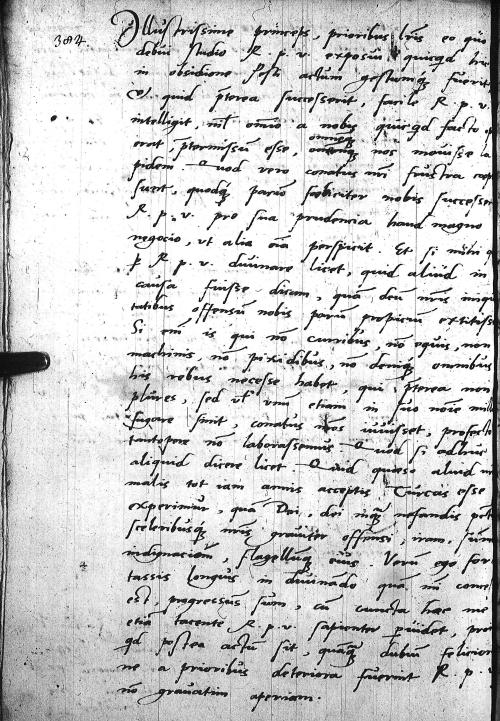 384
Illustrissime princeps, prioribus lris eo quo
debui studio R. p. v. exposui quicqd
in obsidione Pest actum gestumq; fuerit
quid pterea successerit, facile R. p. v.
intelligit, nil omino a nobis quicqd facto
erit, ptermissum esse, omnemq; nos mouisse la
pidem Quod vero conatus nri frustra
fuerit, quodq; parum foeliciter nobis successer
R. p. v. pro sua prudencia haud magno
negocio, vt alia oia perspicit. Et si mihi
R. p. v. diuinare licet, quid aliud in
causa fuisse dicam, qua deu nris iniqu
tatibus offensum nobis parum propicium extitisse
Si em is qui no curribus, no equis, non
machinis, no pixidibus, no deniq; omnibus
his rebus necesse habet, qui pterea non
plures, sed vl vnu etiam in suo noie mill
figare sinit, conatus nros iuuisset, profecto
tantopere no laborassemus Quod si adhuc
aliquid dicere licet Quid queso aliud
malis tot iam annis acceptis Turcas esse
experimur, qua Dei, dei inq; nefandis
sceleribusq; nris grauiter offensi, iram,
indignacioem, flagellumq; eius. Veru ego for
tassis longius in diuinado qua mi
est, progressus sum, cu cuncta hae me
etia tacente R. p. v. sapienter puidet,
qd postea actu sit, quaq; dubiu felicior
ne a prioribus deteriora fuerint R. p. v.
no grauatim aperiam.